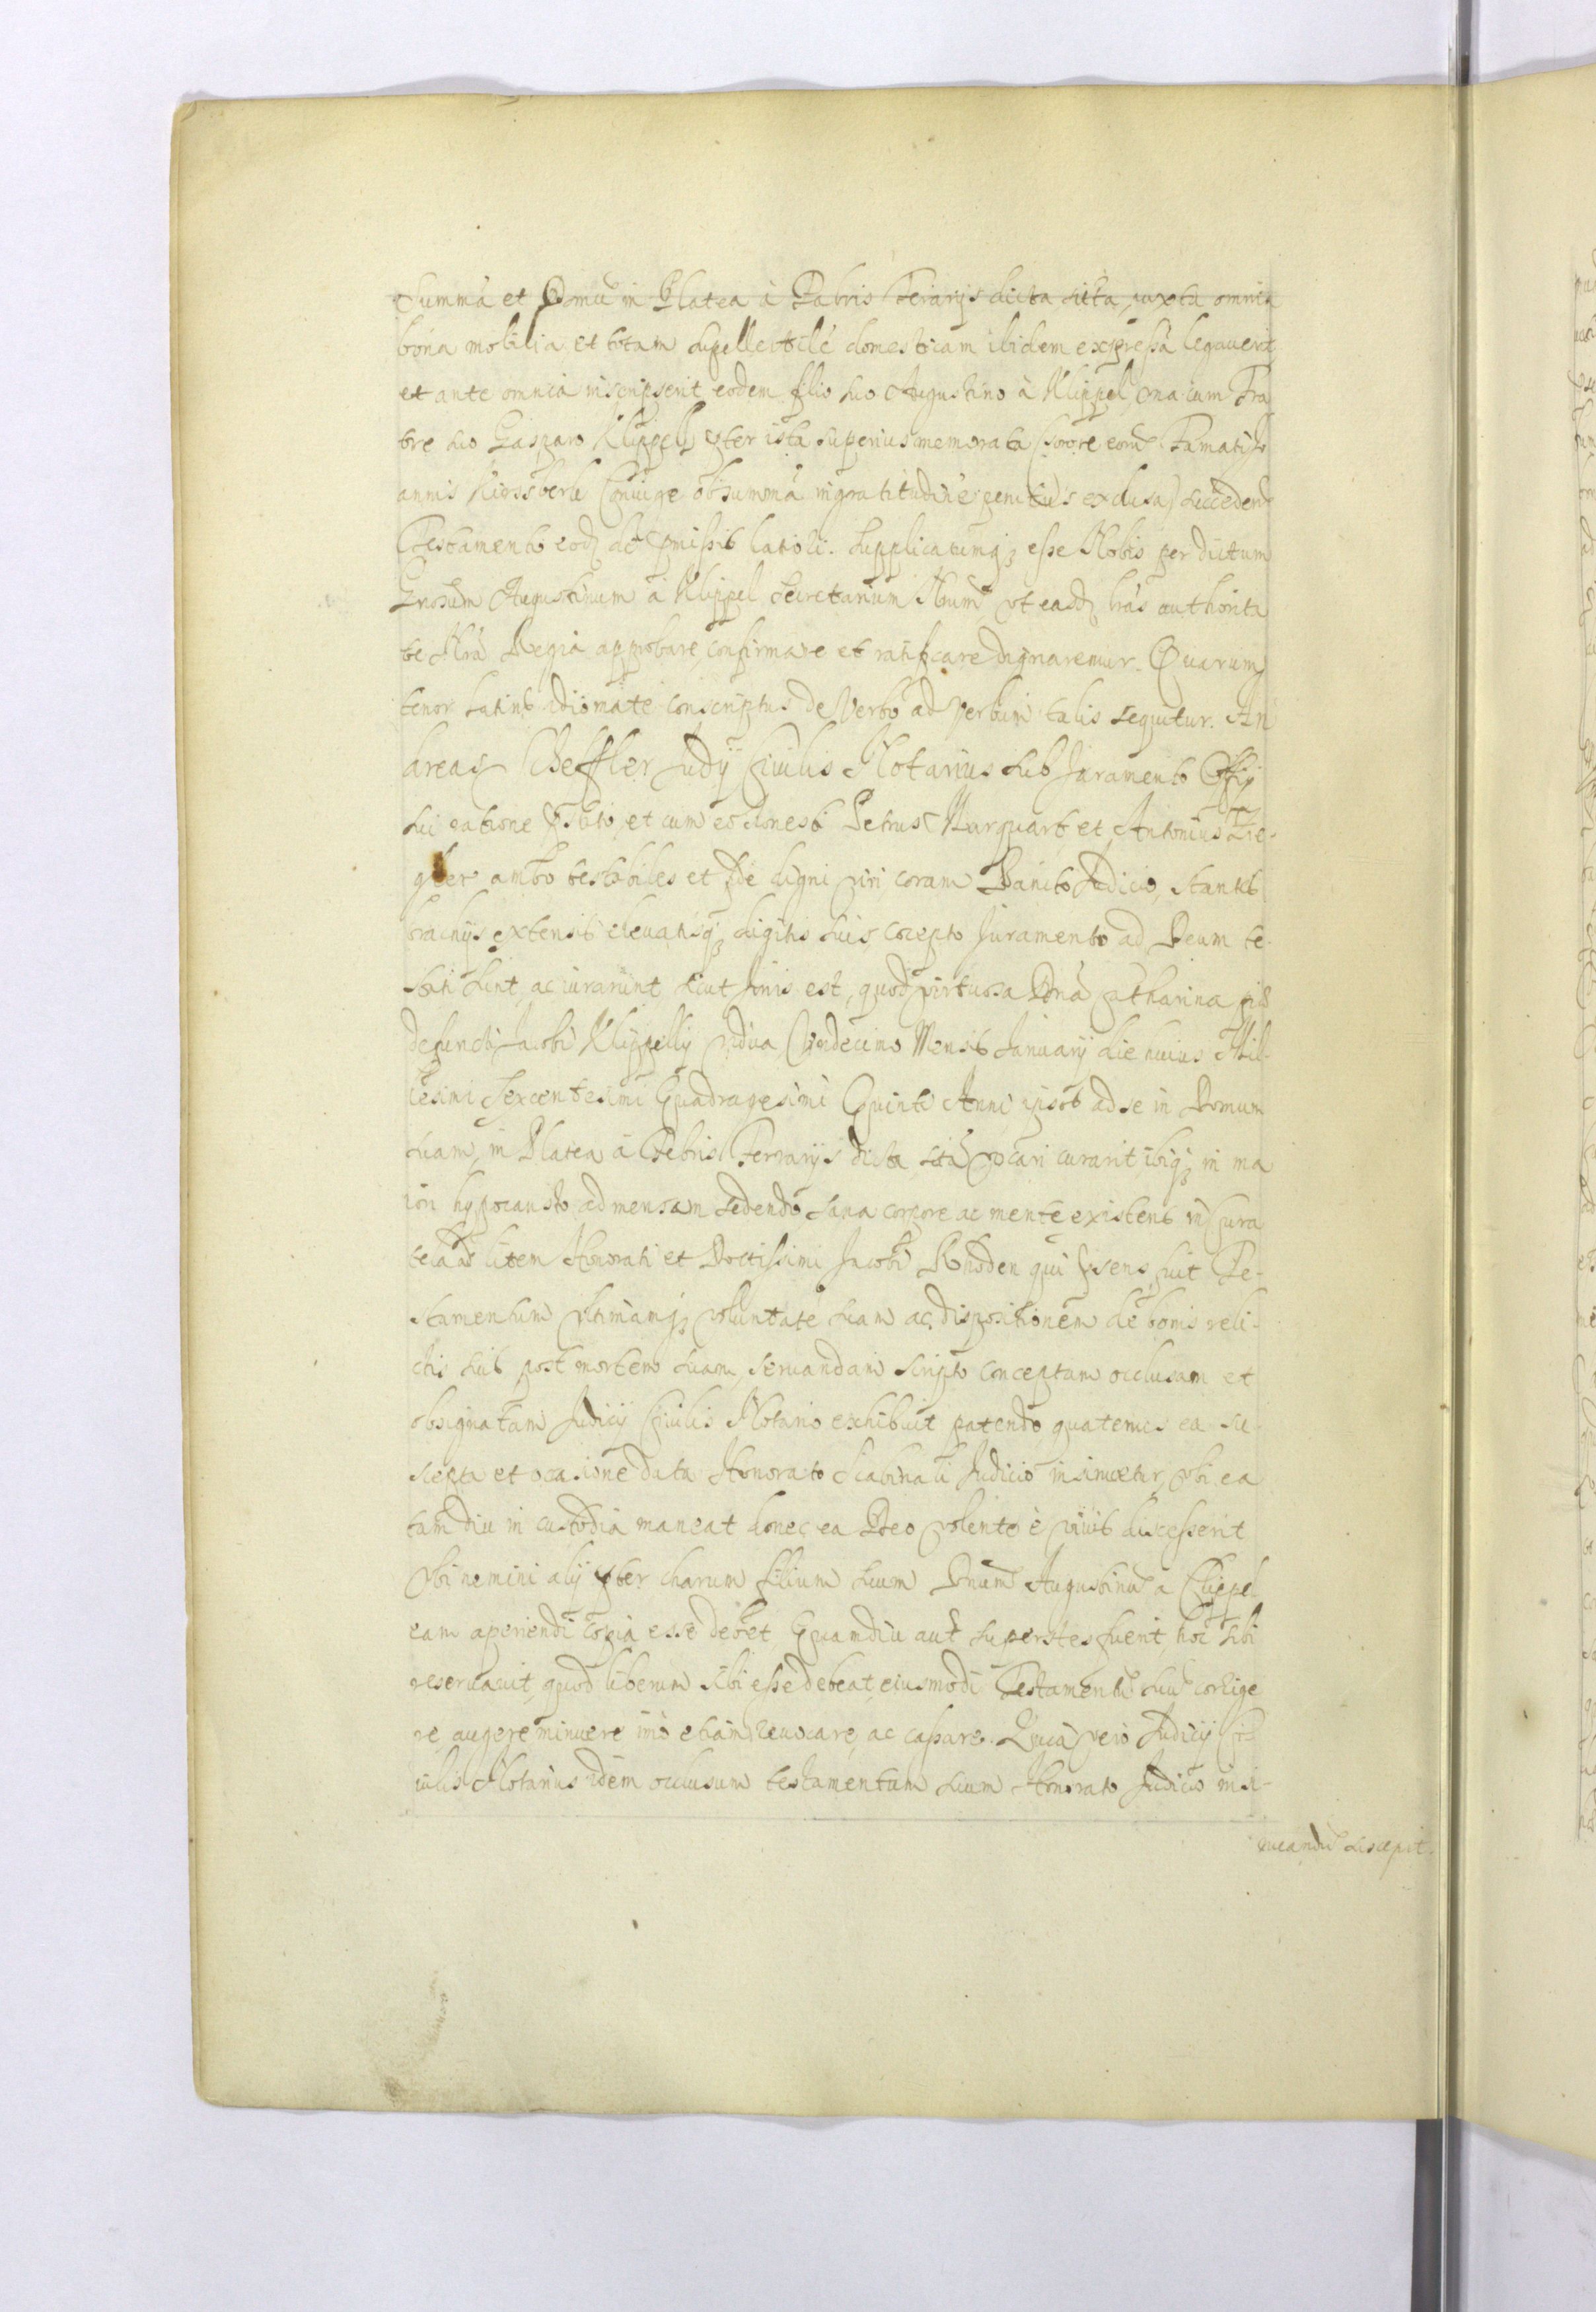 Summa et Domu in Platea à Fabris Ferarijs dicta sita juxta omnia
bona mobilia et totam supellectile domesticam ibidem expressa legaverit
et ante omnia inscripserit eodem filio suo Augustino à Klippel una cum Fra
tre suo Gasparo Klippell pter ista superius memorata Sorore eorum
annis Conjuge ob summa ingratitudine penitus exclusa succeden
Testamento eod de pmissis lationi. Supplicatumq; esse Nobis per dictum
Gnosum Augustinum à Klippel Secretarium Nrum ut easd lras authorita
te Nra Regia approbare confirmare et ratificare dignaremur. Quarum
tenor Latino idiomate conscriptus de Verbo ad Verbum talis sequitur. An
dreas Scheffler Judij Civilis Notarius sub Juramento Officij
sui ratione pstito et cum eo honesti Petrus Marquart et Antonius Zie-
gler ambo testabiles et fide digni viri coram Bannito Judicio, stantes
brachijs extensis elevatisq; digitis suis concepto Juramento ad Deum te-
stati sint ac iurarunt sicut Juris est, quod virtuosa Dna Catharina pie
defuncti Jacobi Klippellij vidua Undecimo Mensis Januarij die huius Mil-
lesimi Sexcentesimi Quadragesimi Quinti Anni ipsos ad se in Domum
suam, in Platea à Fabris Ferrarijs dicta sita vocari curarit ibiq; in ma
iori hypocausto ad mensam sedendo sana corpore ac mente existens in Cura
tela ad litem Honorati et Doctissimi Jacobi Rhoden qui psens fuit Te-
stamentum ultimamq; voluntate suam ac dispositionem de bonis reli-
ctis suis post mortem suam, servandam scripto conceptam occlusam et
obsignatam Judicij Civilis Notario exhibuit petendo quatenus ea su-
scepta et ocasione data Honorato Scabinali Judicio insinuetur, ubi ea
tam diu in custodia maneat donec ea Deo volente è vivis discesserit
Ubi nemini alij pter charum filium suum Dnum Augustinu a Clippel
eam aperiendi copia esse debet, Quamdiu aut superstes fuerit, hoc sibi
reservavit, quod liberum sibi esse debeat, eiusmodi Testamentu suu corrige
re augere minuere imo etiam revocare, ac cassare. Quia vero Judicij Ci-
vilis Notarius idem occlusum testamentum suum Honorato Judicio insi-
nuandu suscepit.